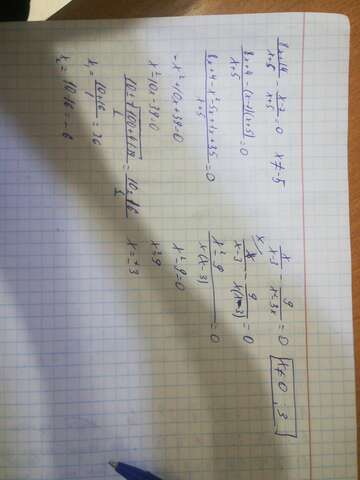 8x+14/x+5 - x-7/x+5 = 0   x≠-5
8x+4-(x-7)(x+5)/x+5 = 0
8x+4-x²-5x+7x+35/x+5 = 0
-x²+10x+39=0
x²-10x-39=0
x₁ = 10+16/ = 26
x₂ = 10-16 = -6
x/x-3 - 9/x²-3x = 0   x≠0; 3
x/x-3 - 9/x(x-3) = 0
x²-9/x(x-3) = 0
x²-9=0
x²=9
x=±3